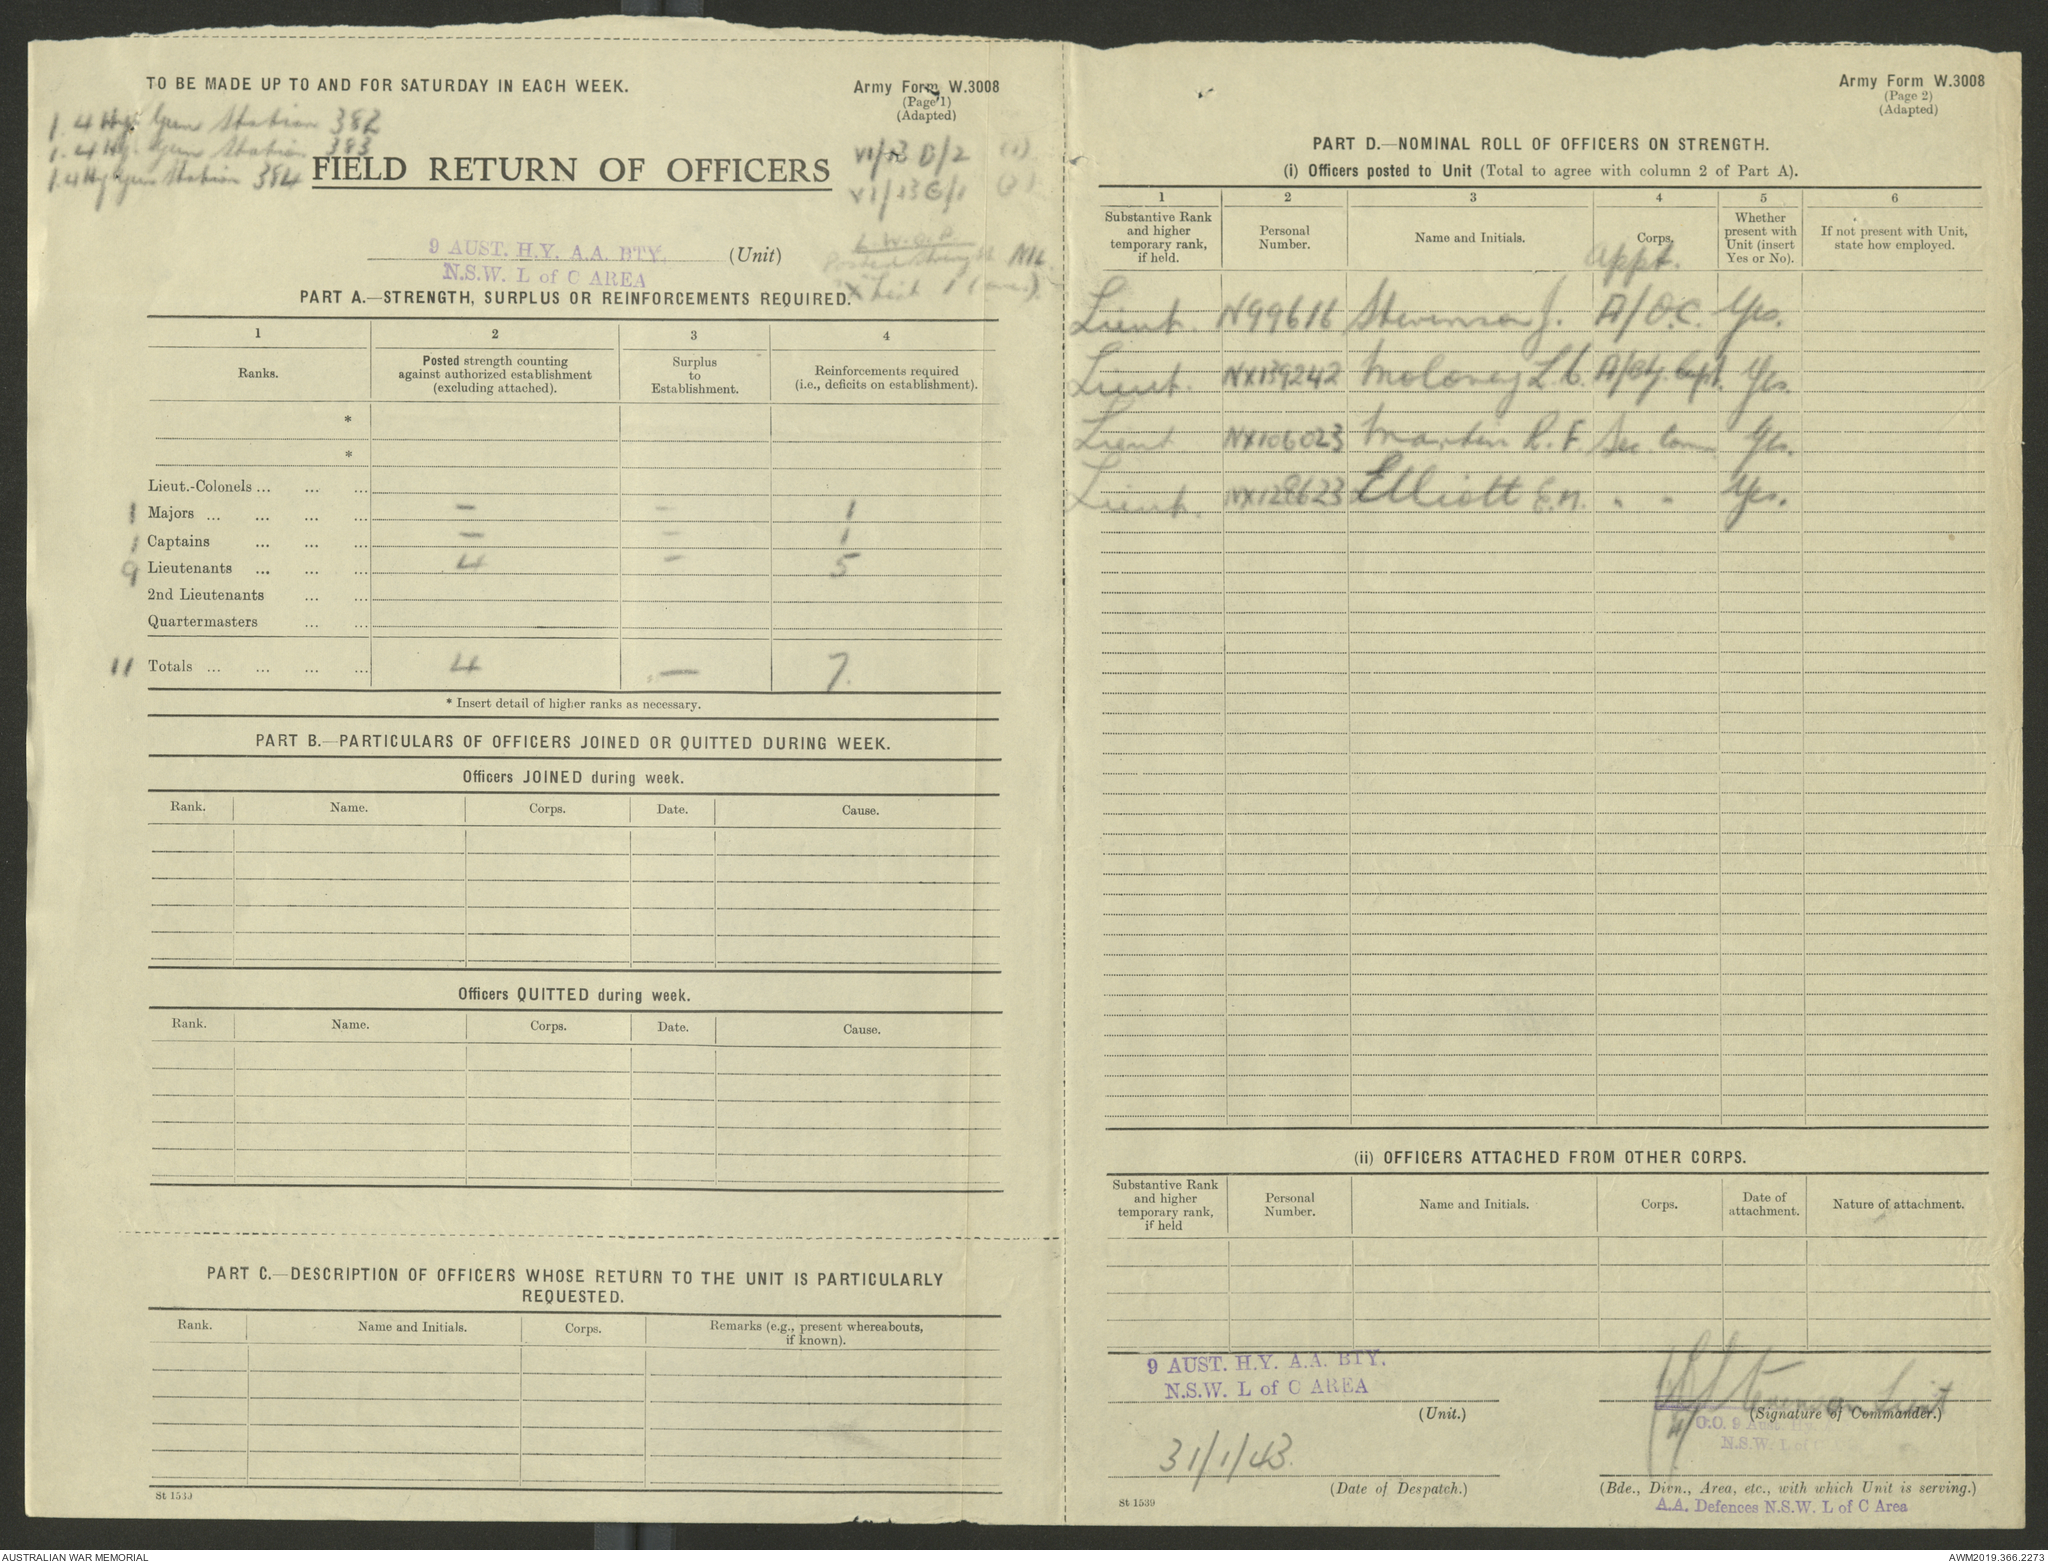 TO BE MADE UP TO AND FOR SATURDAY IN EACH WEEK.
Army Form W.3008
(Page 1)
(Adapted)
1. 4 Hy. Gun Station 382
1. 4 Hy. Gun Station 383
1. 4 Hy Gun Station 384
FIELD RETURN OF OFFICERS
VI/13 D/2 (1)
VI/13 G/1
9 AUST. H.Y. A.A. BTY.
N.S.W. L of C AREA
(Unit)
Posted Strength NIL
PART A.—STRENGTH, SURPLUS OR REINFORCEMENTS REQUIRED.
1 2 3 4
Ranks.
Posted strength counting against authorized establishment (excluding attached).
Surplus to Establishment.
Reinforcements required (i.e., deficits on establishment).
*
*
Lieut.-Colonels ... ... ...
1 Majors ... ... ... ... – – 1
1 Captains ... ... ... – – 1
9 Lieutenants ... ... ... 4 – 5
2nd Lieutenants ... ...
Quartermasters ... ...
11 Totals ... ... ... ... 4 — 7.
* Insert detail of higher ranks as necessary.
PART B.—PARTICULARS OF OFFICERS JOINED OR QUITTED DURING WEEK.
Officers JOINED during week.
Rank. Name. Corps. Date. Cause.
Officers QUITTED during week.
Rank. Name. Corps. Date. Cause.
PART C.—DESCRIPTION OF OFFICERS WHOSE RETURN TO THE UNIT IS PARTICULARLY
REQUESTED.
Rank. Name and Initials. Corps. Remarks (e.g., present whereabouts, if known).
St 1539
Army Form W.3008
(Page 2)
(Adapted)
PART D.—NOMINAL ROLL OF OFFICERS ON STRENGTH.
(i) Officers posted to Unit (Total to agree with column 2 of Part A).
1 2 3 4 5 6
Substantive Rank and higher temporary rank, if held.
Personal Number.
Name and Initials.
Corps.
Appt.
Whether present with Unit (insert Yes or No).
If not present with Unit, state how employed.
Lieut. N99616 Stevenson J. A/O.C. Yes.
Lieut. NX139242 Moloney L.C. A/Bty. Capt. Yes.
Lieut NX106023 Martin R. F. Sec. Comm. Yes.
Lieut. NX128623 Elliott E.N. " " Yes.
(ii) OFFICERS ATTACHED FROM OTHER CORPS.
Substantive Rank and higher temporary rank, if held
Personal Number.
Name and Initials.
Corps.
Date of attachment.
Nature of attachment.
9 AUST. H.Y. A.A. BTY.
N.S.W. L of C AREA
(Unit.)
Stevenson Lieut
(Signature of Commander.)
O.C. 9 Aust. Hy.
N.S.W. L of C
31/1/43.
(Date of Despatch.)
(Bde., Divn., Area, etc., with which Unit is serving.)
A.A. Defences N.S.W. L of C Area
St 1539
AUSTRALIAN WAR MEMORIAL
AWM2019.366.2273